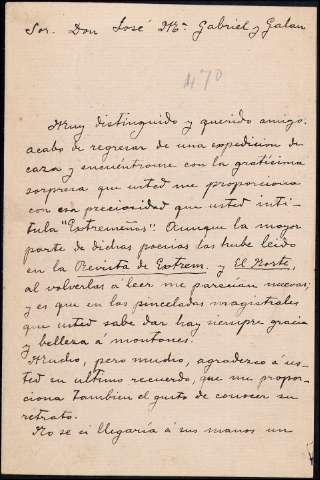 Sor. Don José Mª. Gabriel y Galan
470
Muy distinguido y querido amigo:
acabo de regresar de una expedicion de
caza y encuéntrome con la gratisima
sorpresa que usted me proporciona
con esa preciosidad que usted inti-
tula "Extremeñas". Aunque la mayor
parte de dichas poesias las hube leido
en la Revista de Extrem. y El Norte,
al volverlas á leer me parecian nuevas;
y es que en las pinceladas magistrales
que usted sabe dar hay siempre gracia
y belleza á montones.
Mucho, pero mucho, agradezco á us-
ted su ultimo recuerdo, que me propor-
ciona tambien el gusto de conocer su
retrato.
No se si llegaría á sus manos un